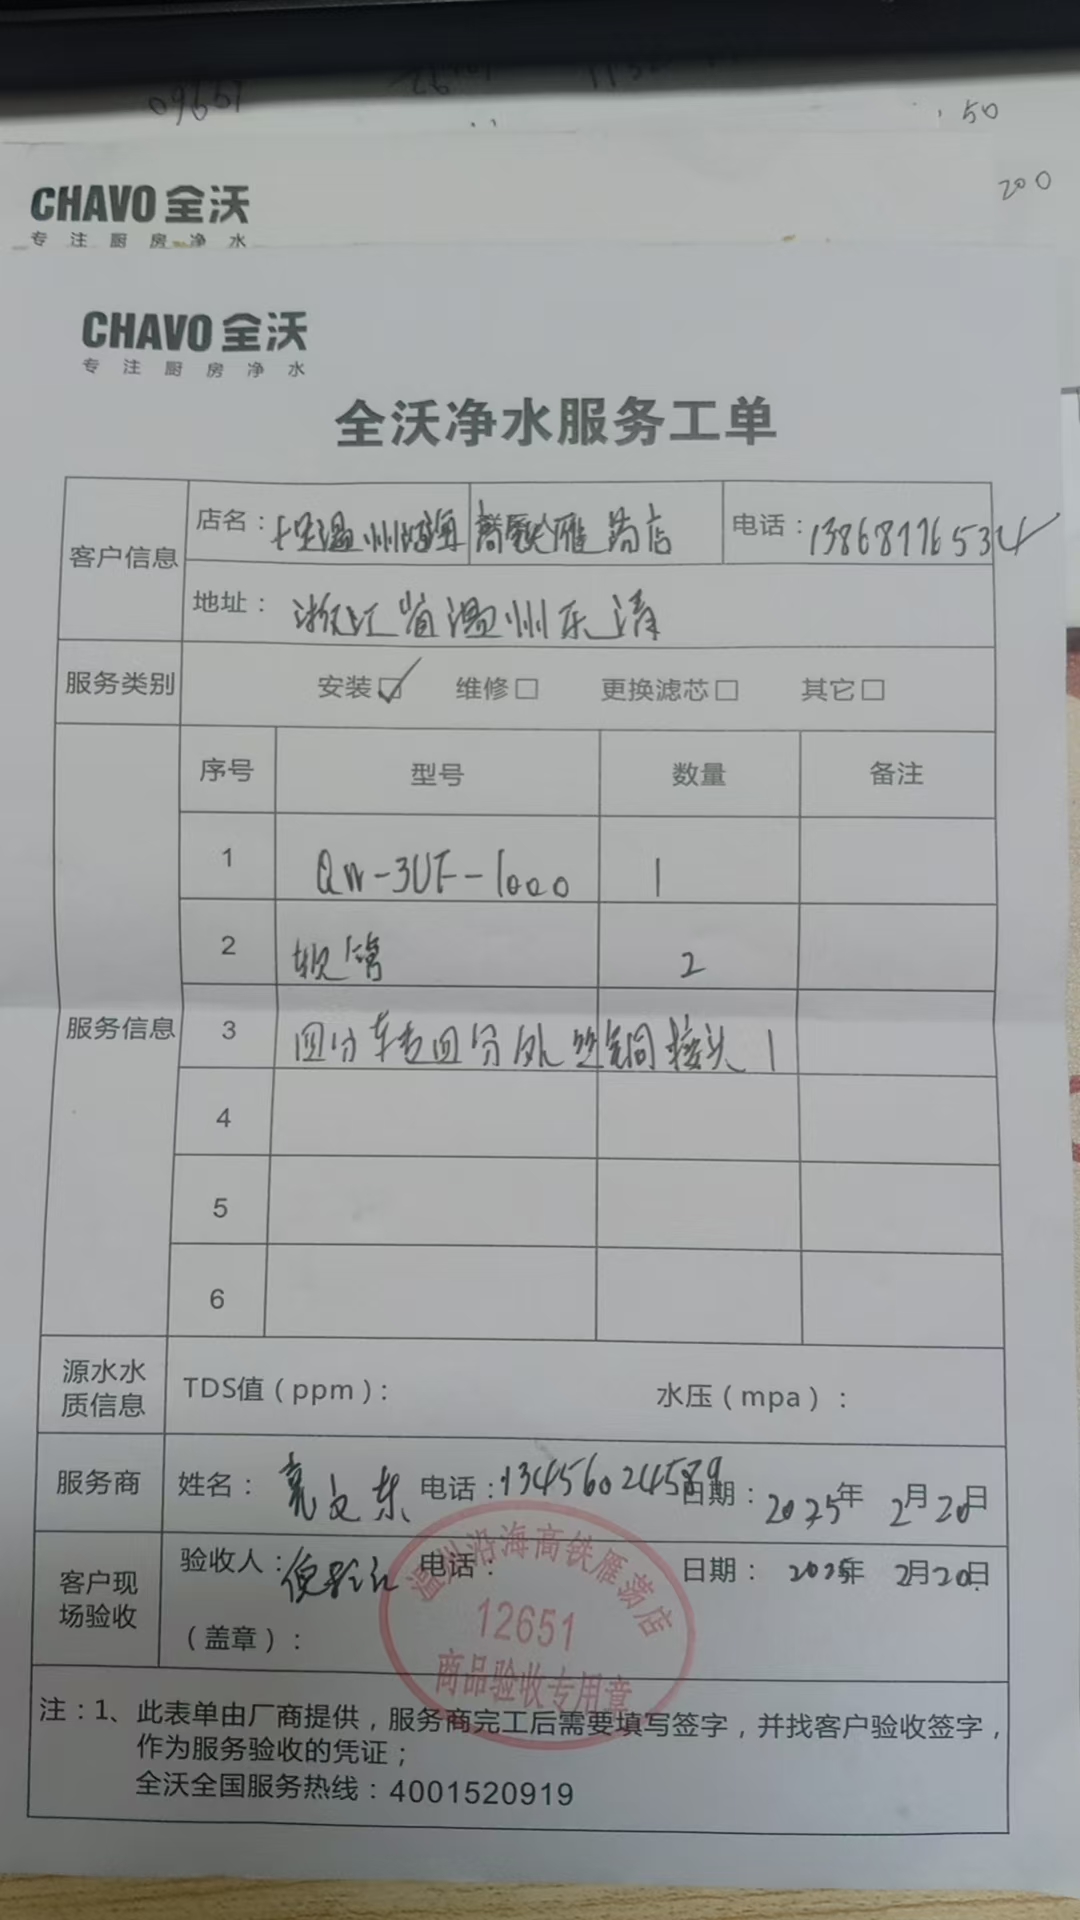 09651
50
200
CHAVO 全沃
专注厨房净水
CHAVO 全沃
专注厨房净水
全沃净水服务工单
客户信息
店名：温州沿海高铁雁荡店
电话：13868776534
地址：浙江省温州乐清
服务类别
安装☑ 维修□ 更换滤芯□ 其它□
服务信息
序号 型号 数量 备注
1 QW-3UF-1000 1
2 软管 2
3 四分转四分外丝铜接头 1
4
5
6
源水水质信息
TDS值（ppm）： 水压（mpa）：
服务商
姓名： 文东 电话：13456024589 日期：2025年 2月20日
客户现场验收
验收人： 电话： 日期：2025年 2月20日
（盖章）：
温州沿海高铁雁荡店
12651
商品验收专用章
注：1、此表单由厂商提供，服务商完工后需要填写签字，并找客户验收签字，
作为服务验收的凭证；
全沃全国服务热线：4001520919